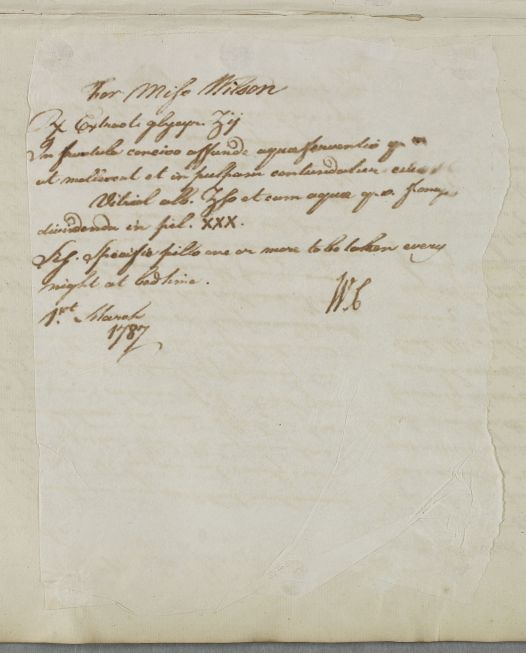 For Miss Wilson
℞ Extract: glycyr. ʒij
In frustule conciso affunde aquae ferventis q.
ut mollescat et in pulpam contundatur
Vitriol alb. ʒss et cum aqua q.s.
dividenda in pil. XXX.
Sig. Specific pills one or more to be taken every
night at bedtime.
W.C
1.st March
1787